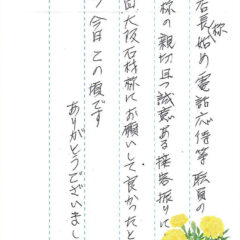 店長始め電話応待等職員の
様の親切且つ誠意ある接客振りに
回大阪石材様にお願いして良かったと
今日この頃です
ありがとうございまし